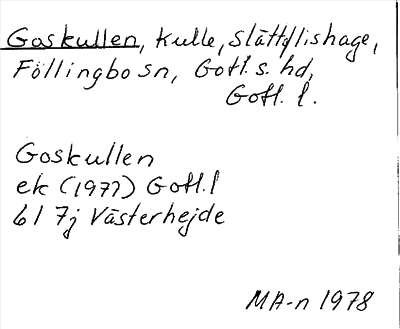 Goskullen, kulle, Slättflishage,
Föllingbo sn, Gotl. s. hd,
Gotl. l.
Goskullen
ek (1977) Gotl. l
6I 7j Västerhejde
MA-n 1978